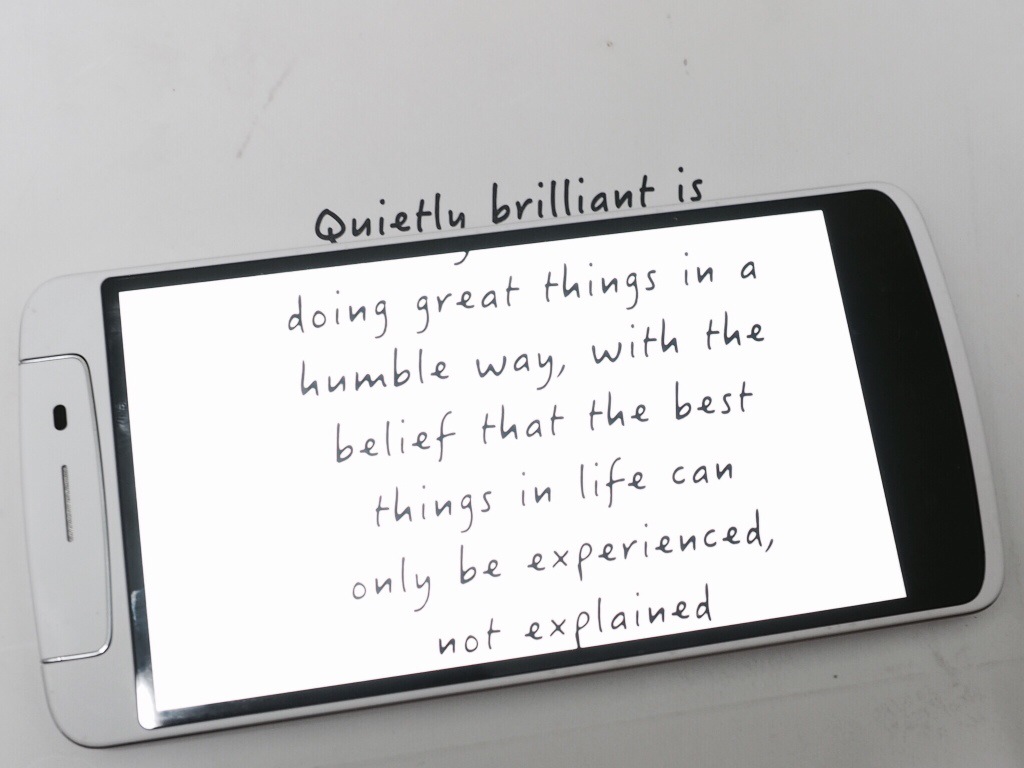 Quietly brilliant is
doing great things in a
humble way, with the
belief that the best
things in life can
only be experienced,
not explained